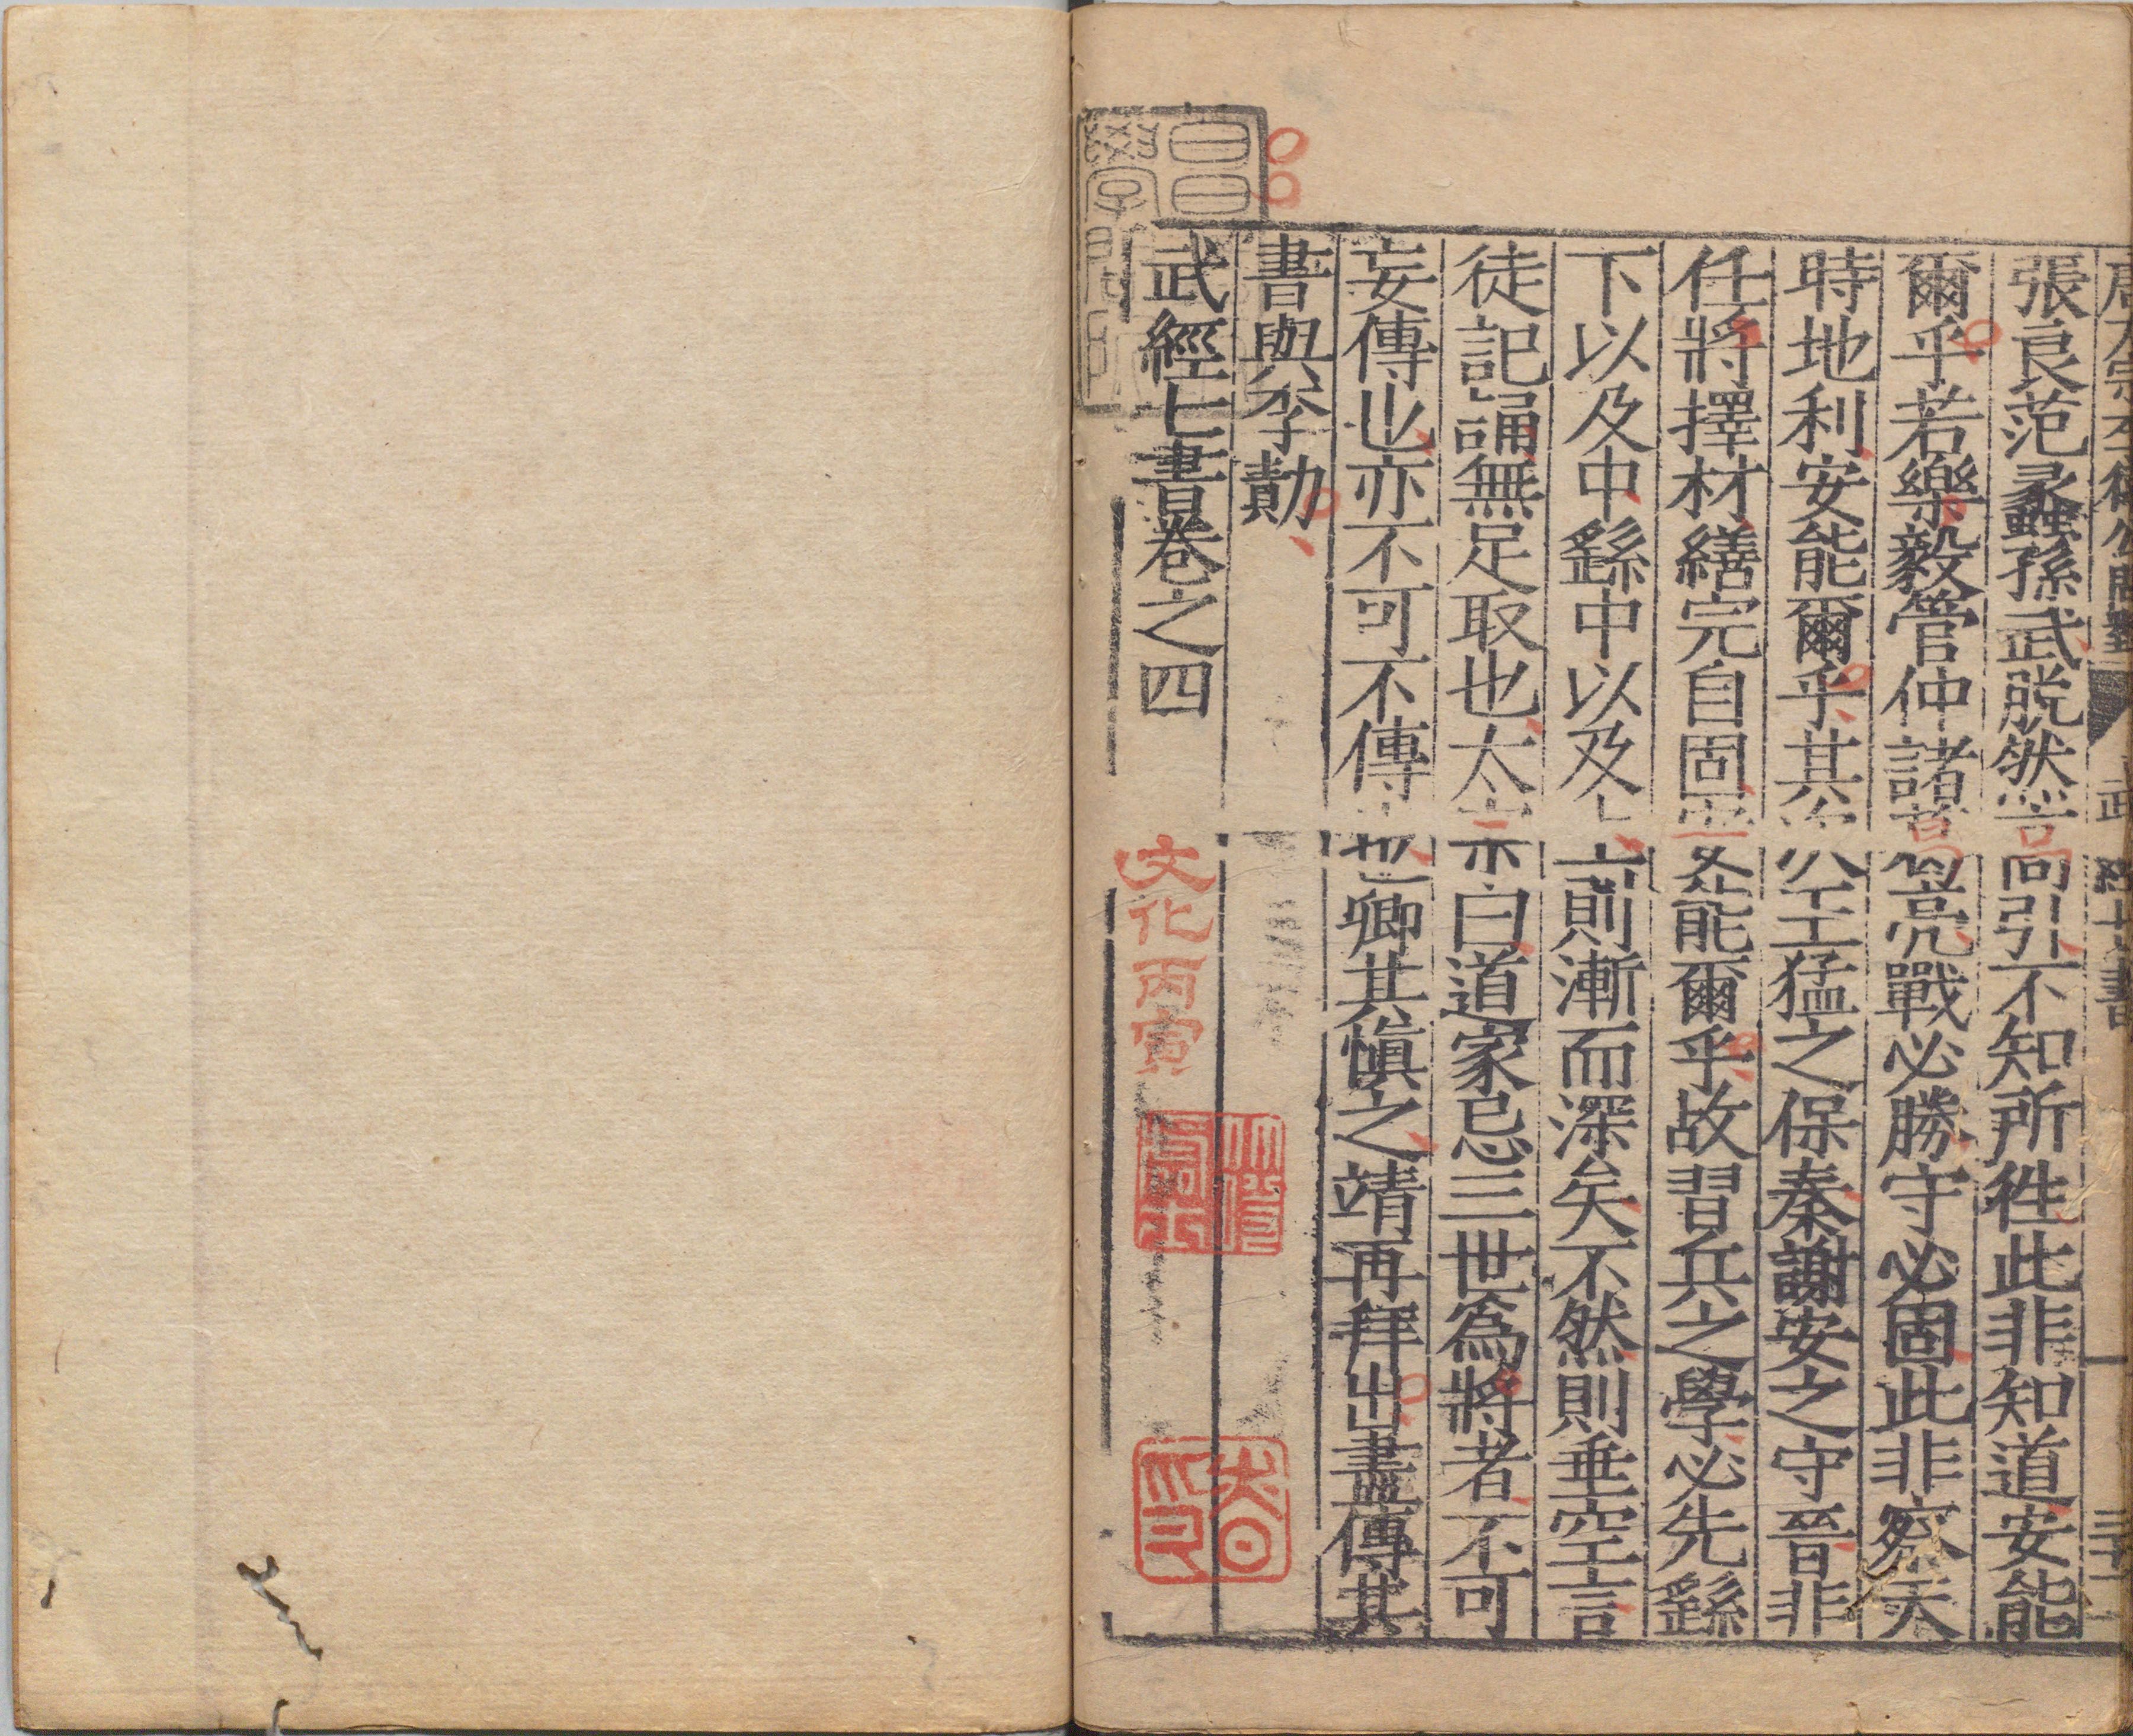 張良范蠡孫武脫然高引不知所徃此非知道安能
爾乎若樂毅管仲諸葛亮戰必勝守必固此非察天
時地利安能爾乎其次王猛之保秦謝安之守晉非
任將擇材繕完自固安能爾乎故習兵之學必先繇
下以及中繇中以及上則漸而深矣不然則垂空言
徒記誦無足取也太宗曰道家忌三世爲將者不可
妄傳也亦不可不傳也卿其慎之靖再拜出盡傳其
書與李勣
武經七書卷之四
文化丙寅
昌平
學